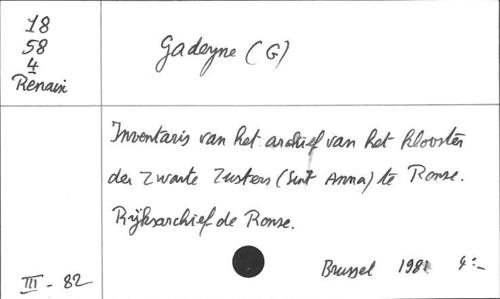 18
58
4
Renaix
Gadeyne (G)
Inventaris van het archief van het klooster
der Zwarte Zusters (Sint Anna) te Ronse.
Rijksarchief de Ronse.
Brussel 1981 4:-
III - 82